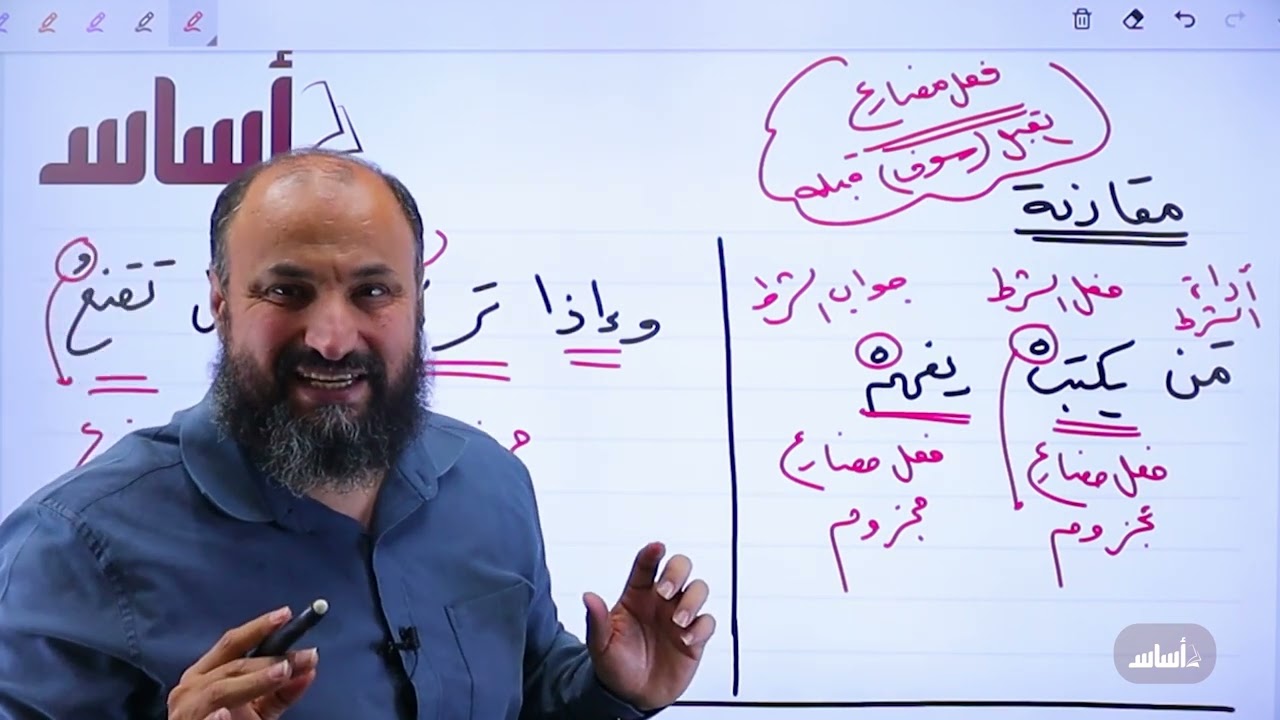 أساس
فعل مضارع
يقبل (سوف) قبله
مقارنة
أداة الشرط
فعل الشرط
جواب الشرط
مَن يكتبْ يفهمْ
فعل مضارع
مجزوم
فعل مضارع
مجزوم
وإذا تر تقنعُ
أساس